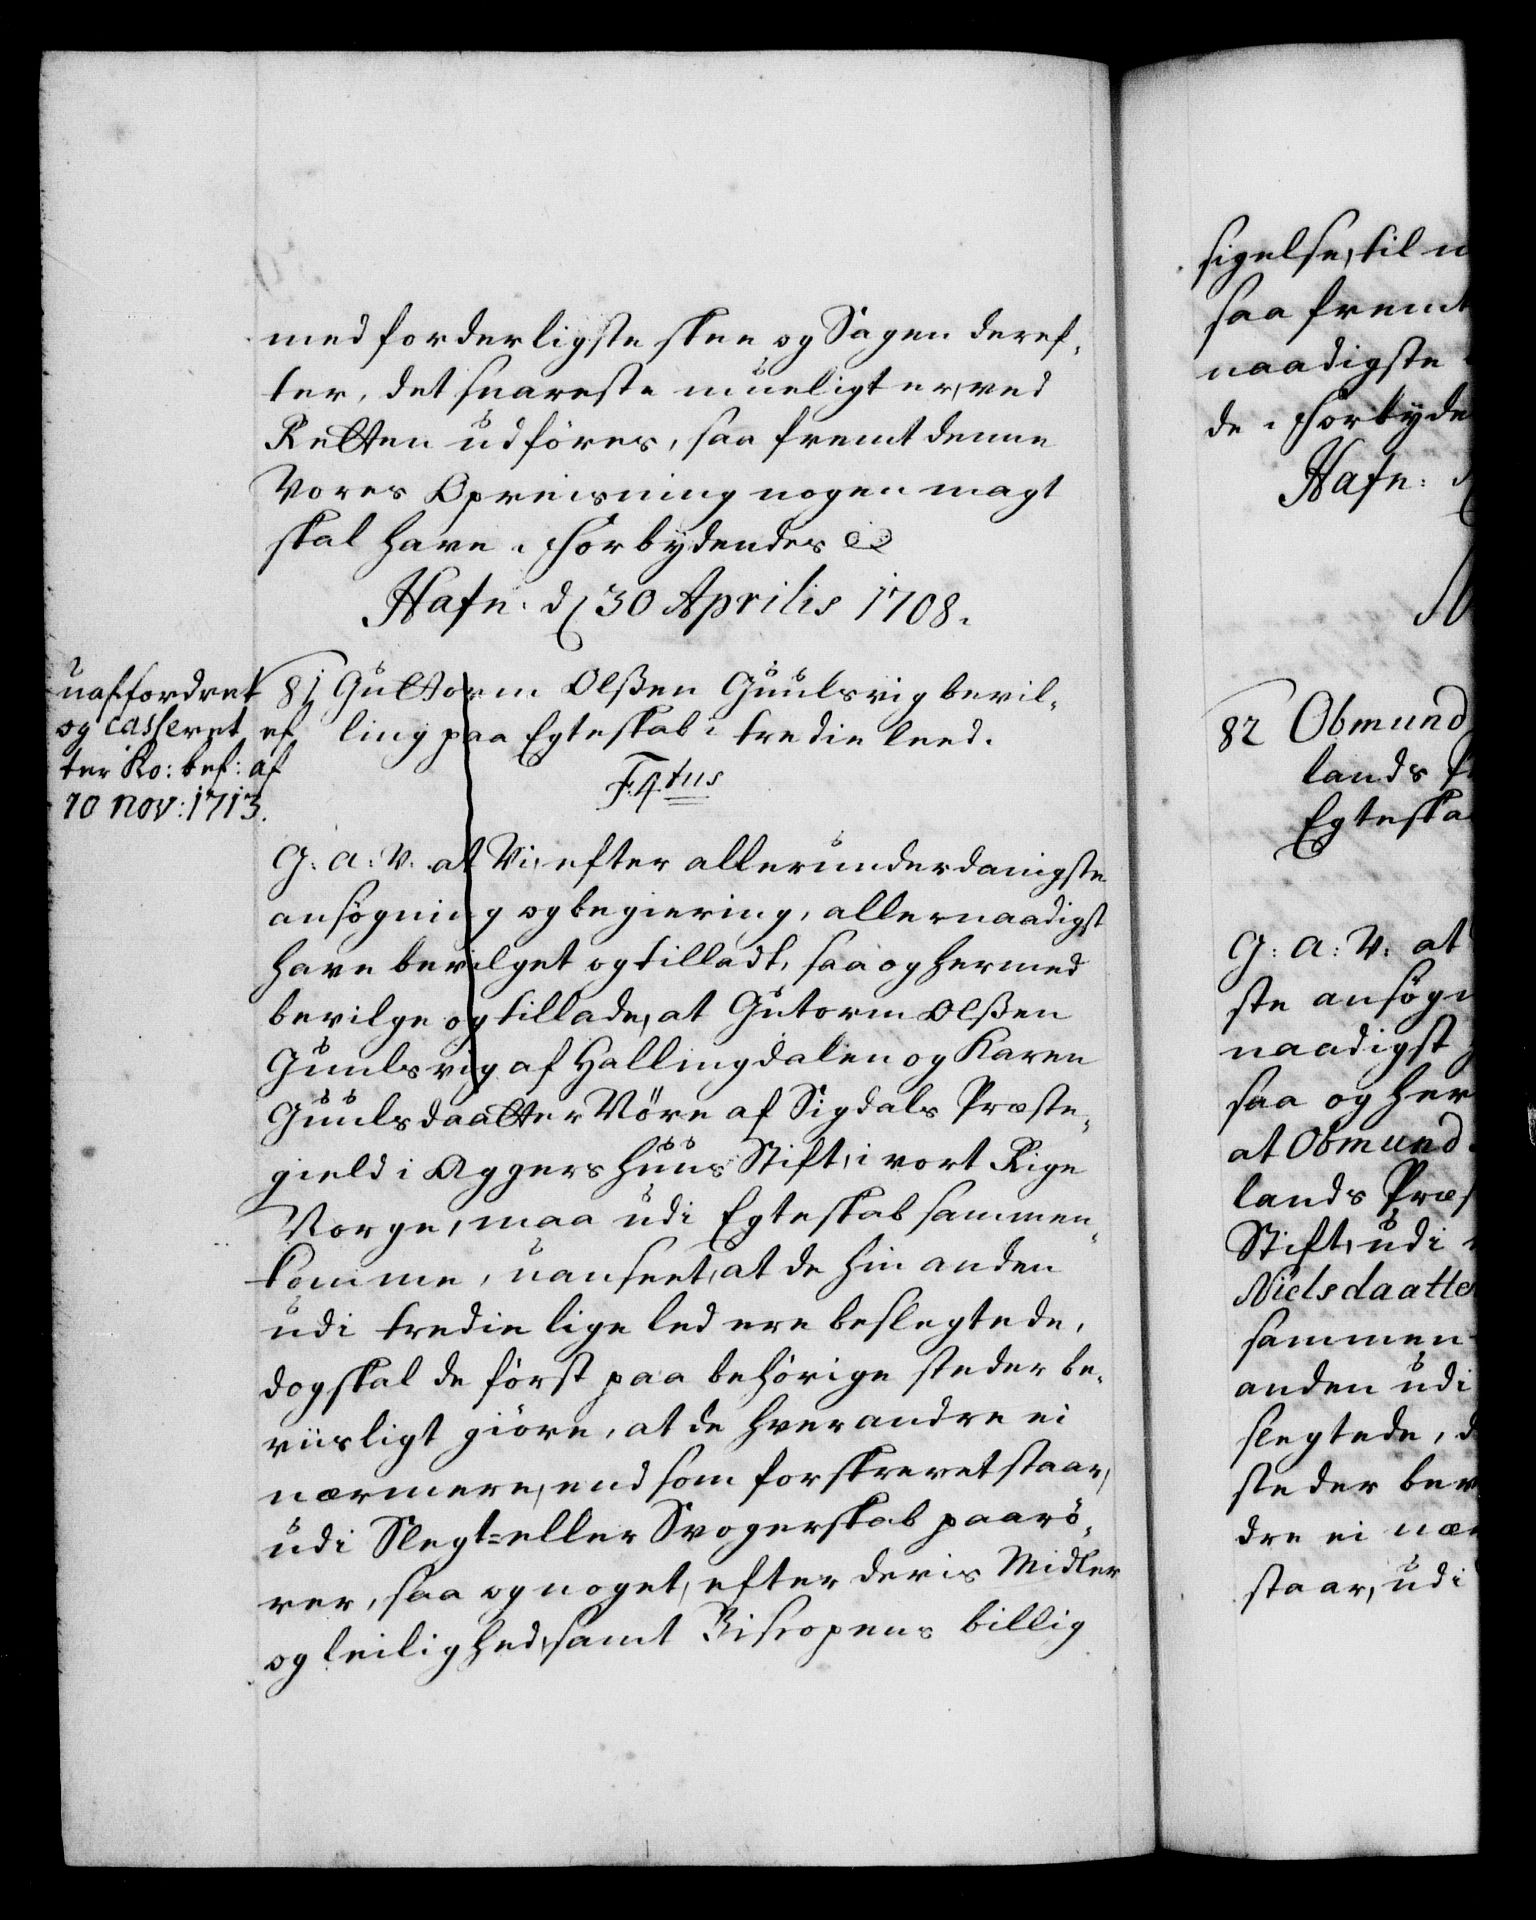 med forderligste skee og Sagen deref-
ter, det snareste mueligt er, ved
Retten udföres, saa fremt denne
Vores Opreisning nogen magt
skal have. Forbydendes
Hafn: d. 30 Aprilis 1708.
uaffordret
og casseret ef
ter Ko: bef: af
10 nov: 1713.
81 Guttorm Olßen Guulsvig bevil-
ling paa Egteskab i tredie leed.
F. 4.tus
G: A: V. at Vi, efter allerunderdanigste
ansøgning og begiering, allernaadigst
have bevilget og tilladt, saa og hermed
bevilge og tillade, at Gutorm Olßen
Guulsvig af Hallingdalen og Karen
Guulsdaatter Vöre af Sigdals Præste-
gield i Aggershuus Stift, i vort Rige
Norge, maa udi Egteskab sammen-
komme, uanseet, at de hin anden
udi tredie lige led ere beslegtede,
dog skal de först paa behörige steder be-
viisligt giöre, at de hver andre ei
nærmere, end som forskrevet staar,
udi Slegt- eller Svogerskab paarö-
rer, saa og noget, efter deris Midler
og leilighed, samt Biscopens billig
sigelse, til
saa fremt
naadigste
de. Forbyde
Hafn:
82 Obmund
lands
Egteska
G: A: V: at
ste ansøgn
naadigst
saa og her
at Obmund
lands Præs
Stift, udi
Nielsdaatte
sammen
anden udi
slegtede, d
steder bev
dre ei nær
staar, udi